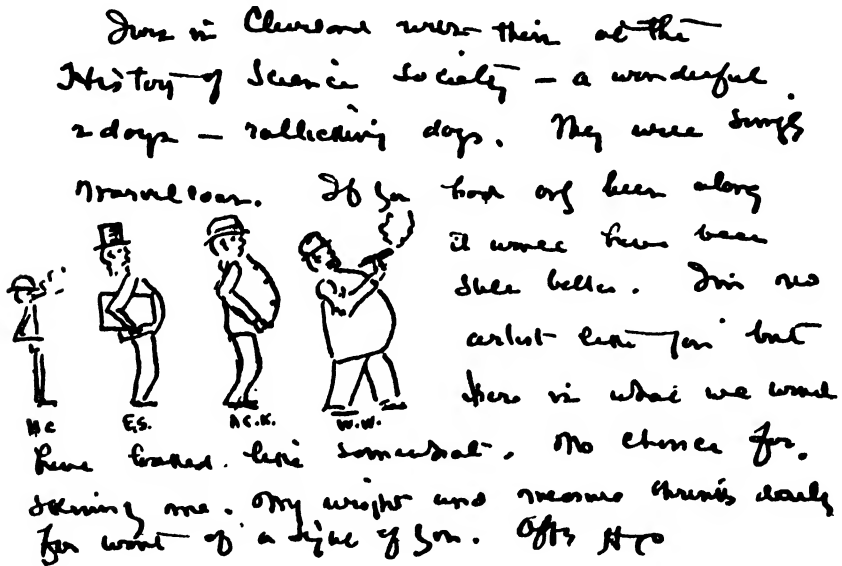 in Cleveland were there at the
History of Science Society – a wonderful
2 days – rollicking days. They were simply
marvellous. If you had only been along
it would have been
still better. I'm no
artist like you but
here is what we would
H C E.S. A.C.K. W.W.
have looked like somewhat. No chance for
seeing me. My weight and measure shrinks daily
for want of a sight of you.